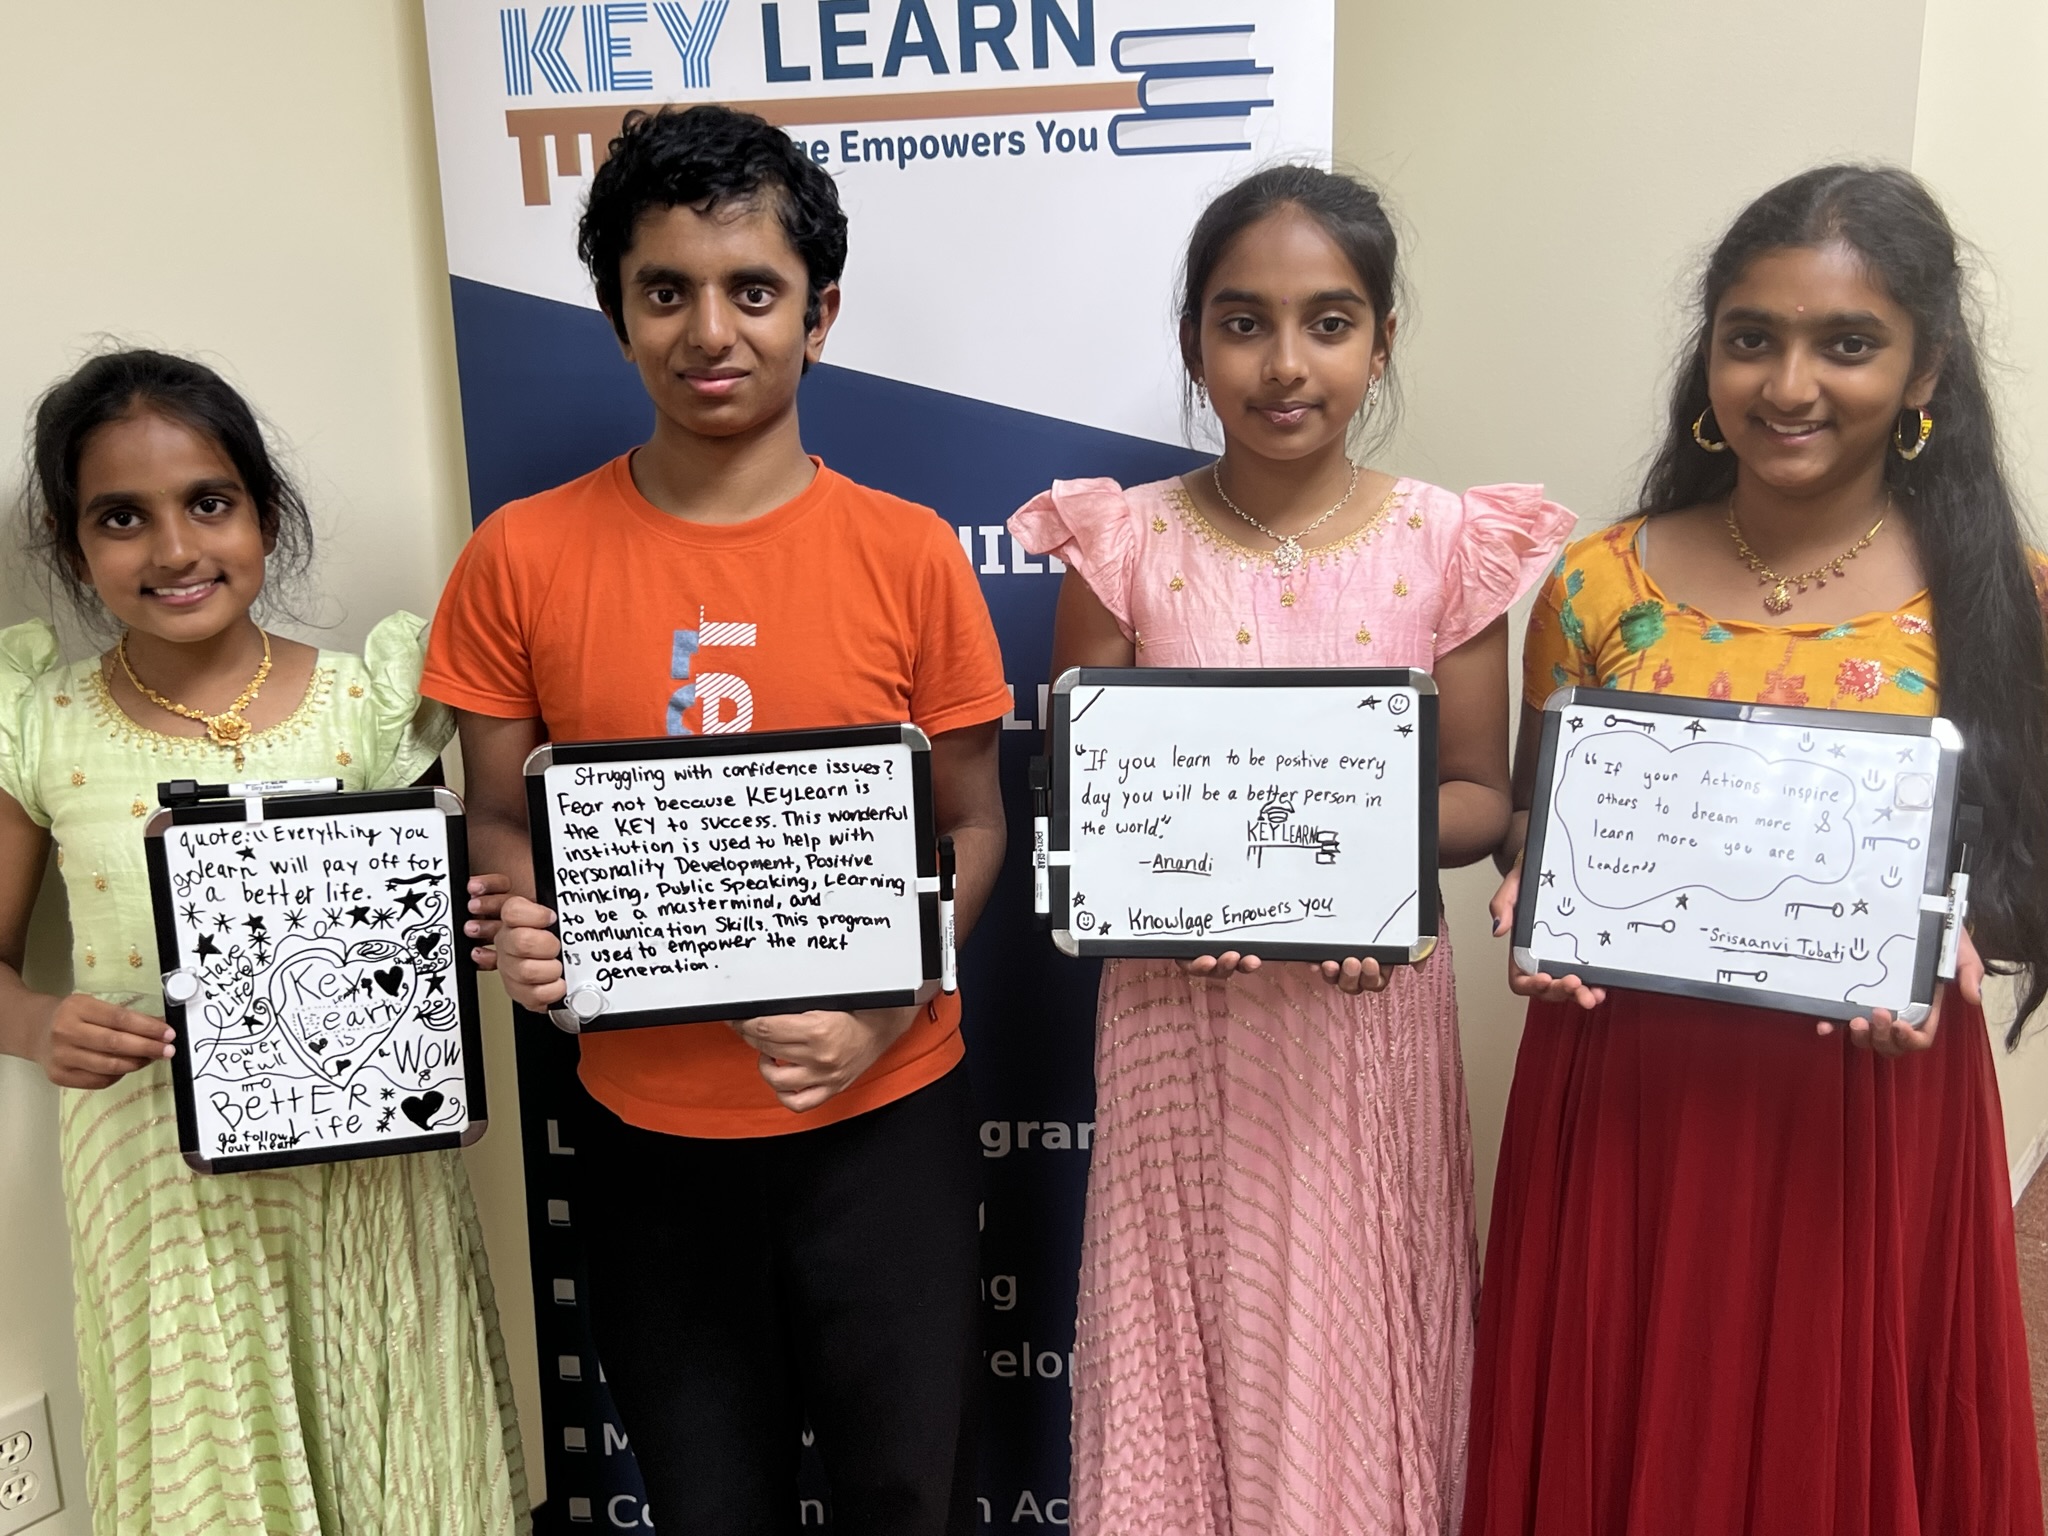 KEY LEARN
ge Empowers You
gran
ng
velop
n Ac
quote: "Everything you
learn will pay off for
a better life.
Have
a Nice
Life
Key
Learn
is
a
WOW
Power
full
BettER
Life
go follow
your heart
Struggling with confidence issues?
Fear not because KEYLearn is
the KEY to success. This wonderful
institution is used to help with
Personality Development, Positive
Thinking, Public Speaking, Learning
to be a mastermind, and
Communication Skills. This program
is used to empower the next
generation.
"If you learn to be positive every
day you will be a better person in
the world."
KEY LEARN
-Anandi
Knowlage Empowers You
"If your Actions inspire
others to dream more &
learn more you are a
Leader"
-Srisaanvi Tubati